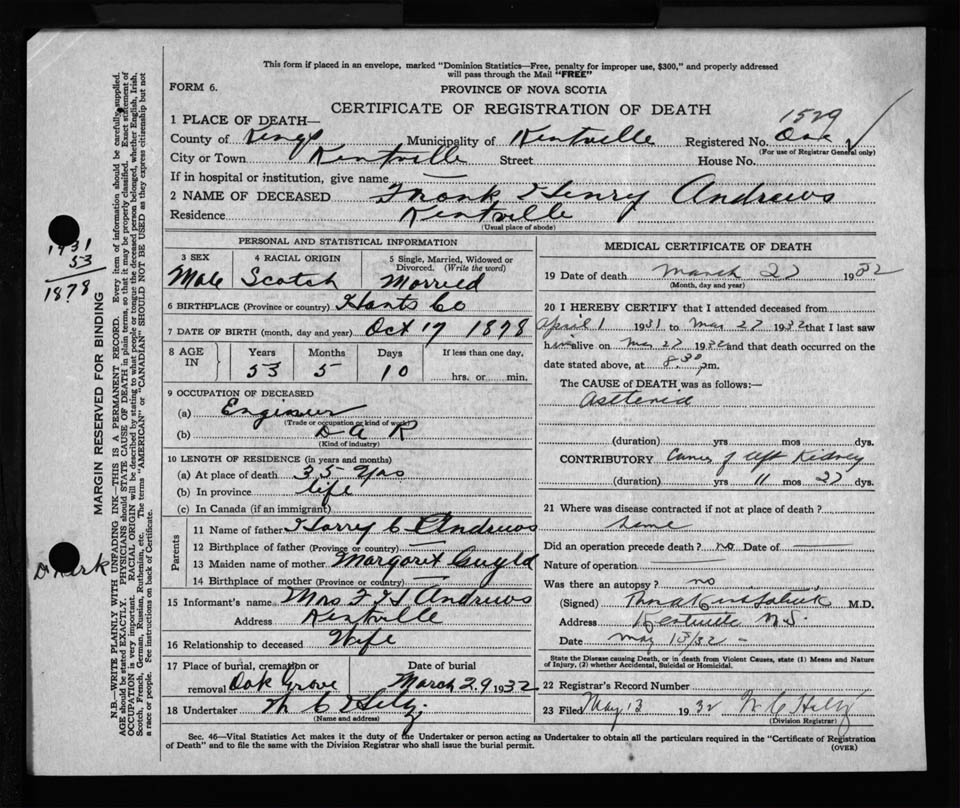 This form if placed in an envelope, marked "Dominion Statistics—Free, penalty for improper use, $300," and properly addressed
will pass through the Mail "FREE"
FORM 6.
PROVINCE OF NOVA SCOTIA
CERTIFICATE OF REGISTRATION OF DEATH
1529
1 PLACE OF DEATH—
County of Kings Municipality of Kentville Registered No.
(For use of Registrar General only)
City or Town Kentville Street House No.
If in hospital or institution, give name —
2 NAME OF DECEASED Frank Henry Andrews
Residence Kentville
(Usual place of abode)
PERSONAL AND STATISTICAL INFORMATION
3 SEX 4 RACIAL ORIGIN 5 Single, Married, Widowed or
Divorced. (Write the word)
Male Scotch Married
6 BIRTHPLACE (Province or country) Hants Co
7 DATE OF BIRTH (month, day and year) Oct 17 1878
8 AGE IN Years Months Days If less than one day,
53 5 10 hrs. or min.
9 OCCUPATION OF DECEASED
(a) Engineer
(Trade or occupation or kind of work)
(b) D A R
(Kind of industry)
10 LENGTH OF RESIDENCE (in years and months)
(a) At place of death 35 yrs
(b) In province life
(c) In Canada (if an immigrant)
Parents
11 Name of father Harry C Andrews
12 Birthplace of father (Province or country) —
13 Maiden name of mother Margaret
14 Birthplace of mother (Province or country) —
15 Informant's name Mrs F H Andrews
Address Kentville
16 Relationship to deceased Wife
17 Place of burial, cremation or Date of burial
removal Oak Grove March 29 1932
18 Undertaker W C Hiltz
(Name and address)
MEDICAL CERTIFICATE OF DEATH
19 Date of death March 27 1932
(Month, day and year)
20 I HEREBY CERTIFY that I attended deceased from
April 1 1931 to Mar 27 1932 that I last saw
him alive on Mar 27 1932 and that death occurred on the
date stated above, at 8.30 p.m.
The CAUSE of DEATH was as follows:—
Asthenia
(duration) yrs mos dys.
CONTRIBUTORY Cancer of left Kidney
(duration) yrs 11 mos 27 dys.
21 Where was disease contracted if not at place of death?
same
Did an operation precede death? no Date of —
Nature of operation —
Was there an autopsy? no
(Signed) M.D.
Address Kentville N.S.
Date May 13/32
State the Disease causing Death, or in death from Violent Causes, state (1) Means and Nature
of Injury, (2) whether Accidental, Suicidal or Homicidal.
22 Registrar's Record Number
23 Filed May 13 1932 W C Hiltz
(Division Registrar)
Sec. 46—Vital Statistics Act makes it the duty of the Undertaker or person acting as Undertaker to obtain all the particulars required in the "Certificate of Registration
of Death" and to file the same with the Division Registrar who shall issue the burial permit.
(OVER)
1931
53
1878
MARGIN RESERVED FOR BINDING
N.B.—WRITE PLAINLY WITH UNFADING INK—THIS IS A PERMANENT RECORD. Every item of information should be carefully supplied.
AGE should be stated EXACTLY. PHYSICIANS should STATE CAUSE OF DEATH in plain terms, so that it may be properly classified. Exact statement of
OCCUPATION is very important. RACIAL ORIGIN will be described by stating to what people or tongue the deceased person belonged, whether English, Irish,
Scotch, French, German, Russian, Ruthenian, etc. The terms "AMERICAN" or "CANADIAN" SHOULD NOT BE USED as they express citizenship but not
a race or people. See instructions on back of Certificate.